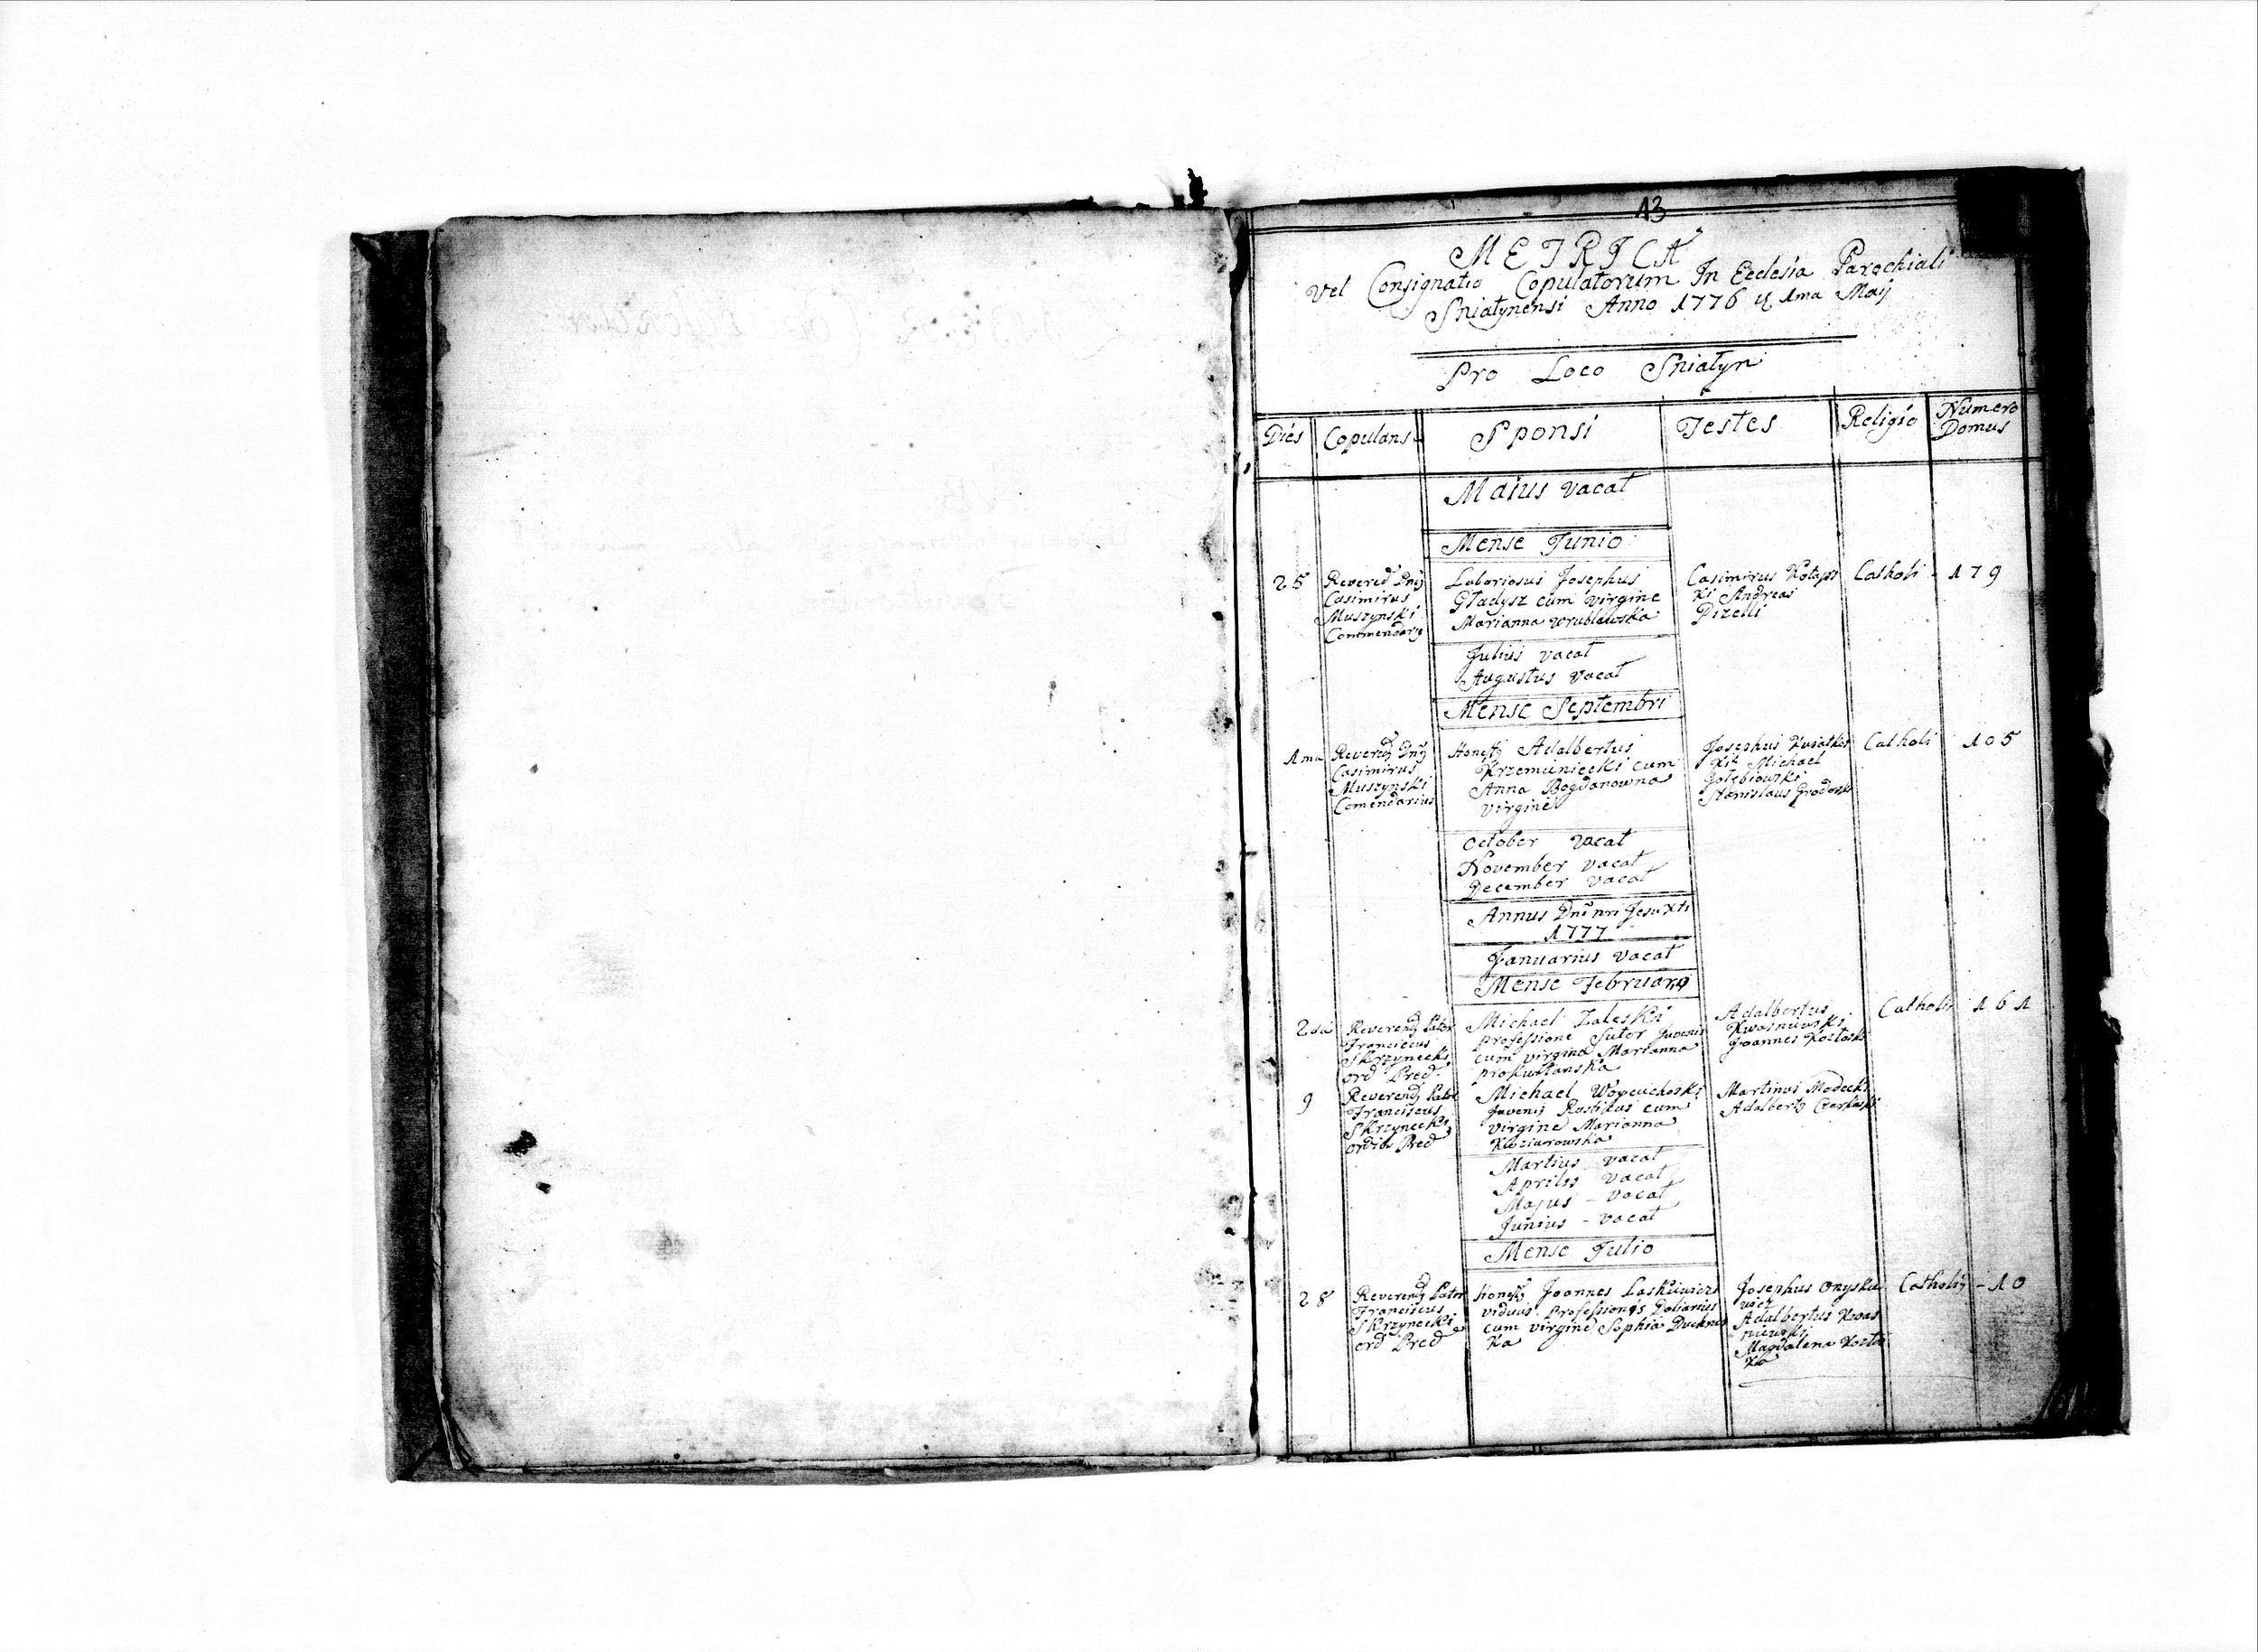 13
METRICA
vel Consignatio Copulatorum In Ecclesia Parochiali
Sniatynensi Anno 1776 1ma Maij
Pro Loco Sniatyn
Dies
Copulans
Sponsi
Testes
Religio
Numero
Domus
Maius vacat
Mense Junio
25
Revered Dnj
Casimirus
Muszynski
Laboriosus Josephus
Gładysz cum virgine
Marianna Wrublewska
Casimirus
ki Andreas
Catholi
179
Julius vacat
Augustus vacat
Mense Septembri
1ma
Reverendj Dnj
Casimirus
Muszynski
Comendarius
Honestj Adalbertus
Krzemieniecki cum
Anna Bogdanowna
virgine
Josephus
Michael
Gołębiowski
Stanislaus Grodoski
Catholi
105
October vacat
November vacat
December vacat
Annus Dni nri Jesu Xti
1777
Januarius vacat
Mense Februario
2da
Reverendj Pater
Franciscus
Skrzynecki
ord Pred
Michael Zaleski
professione Sutor Juvenis
cum virgine Marianna
Adalbertus
Kwasniewski
Joannes Kozłoski
Catholi
161
9
Reverendj Pater
Franciscus
Skrzynecki
ordis Pred
Michael
Juvenis Rustikus cum
virgine Marianna
Koziarowska
Martinus Madecki
Adalbertj
Martius vacat
Aprilis vacat
Majus - vacat
Junius - vacat
Mense Julio
28
Reverendj Pater
Franciscus
Skrzynecki
ord Pred
Honestj Joannes Laskiewicz
viduus Professionis Doliarius
cum virgine Sophia
ka
Josephus Onyskie
wicz
Adalbertus Kwas
niewski
Magdalena
ka
Catholi
- 10